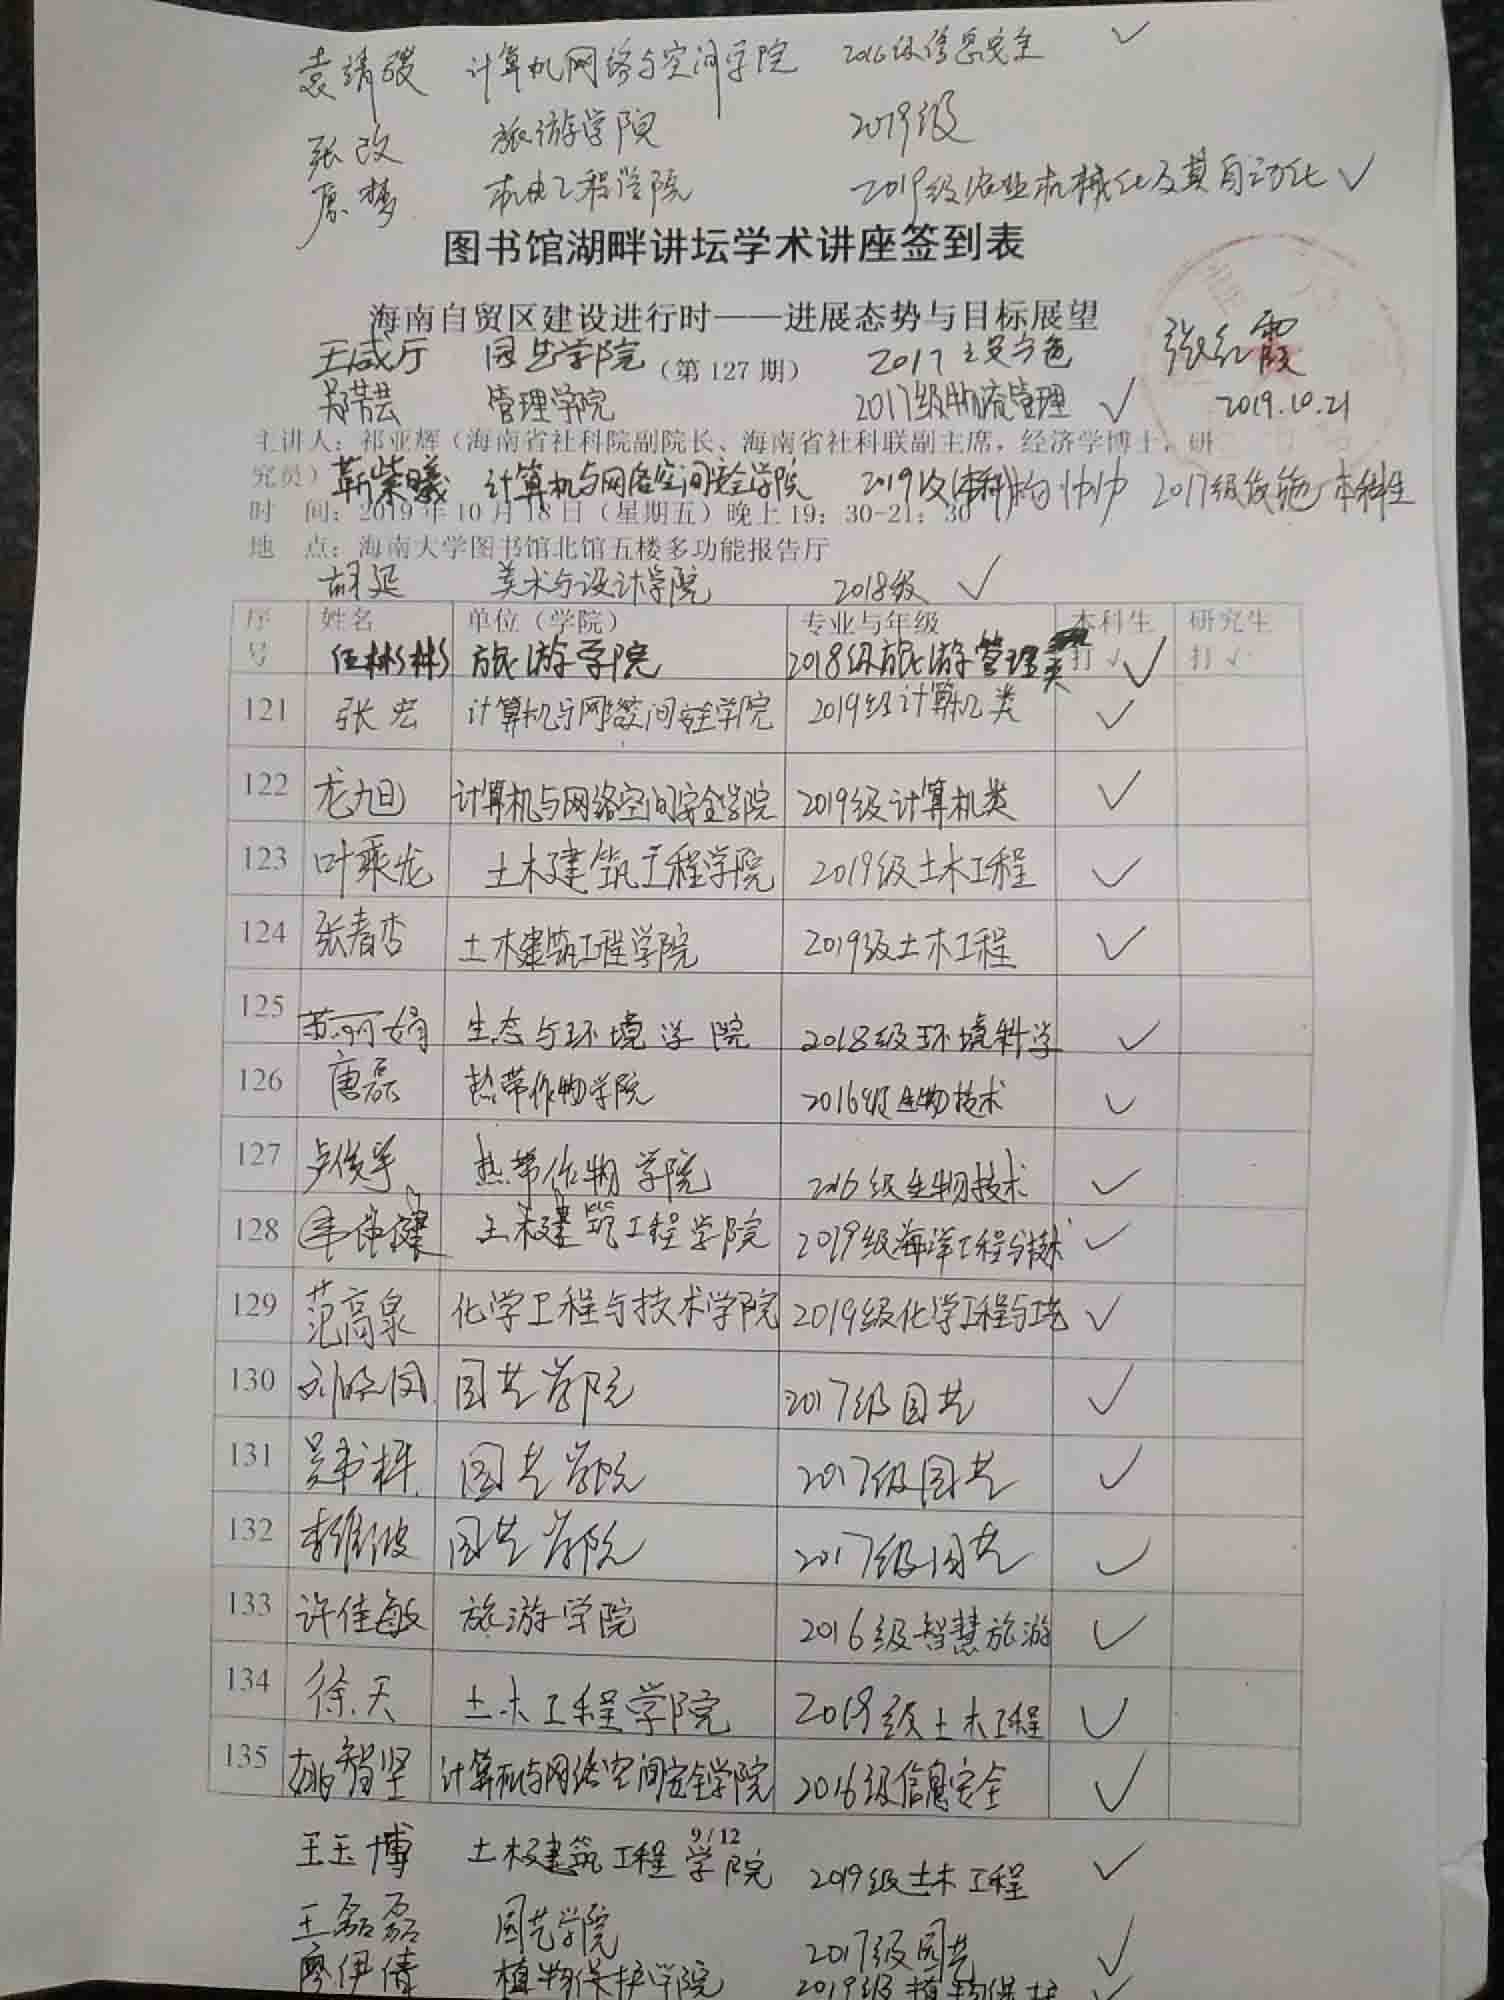 袁靖 计算机网络与空间学院 2016级信息安全 ✓
张改 旅游学院 2019级
原梦 机电工程学院 2019级农业机械化及其自动化 ✓
图书馆湖畔讲坛学术讲座签到表
海南自贸区建设进行时——进展态势与目标展望
王威厅 园艺学院 2017 张红霞
（第 127 期）
郑芸 管理学院 2017级物流管理 ✓ 2019.10.21
主讲人：祁亚辉（海南省社科院副院长、海南省社科联副主席，经济学博士，研
究员）
靳紫曦 计算机与网络空间安全学院 2019级(本科) 2017级 本科生
时 间：2019 年 10 月 18 日（星期五）晚上 19：30-21：30
地 点：海南大学图书馆北馆五楼多功能报告厅
胡延 美术与设计学院 2018级 ✓
序号 姓名 单位（学院） 专业与年级 本科生打√ 研究生打√
伍彬彬 旅游学院 2018级旅游管理类 ✓
121 张宏 计算机与网络空间安全学院 2019级计算机类 ✓
122 龙旭 计算机与网络空间安全学院 2019级计算机类 ✓
123 叶乘龙 土木建筑工程学院 2019级土木工程 ✓
124 张春杏 土木建筑工程学院 2019级土木工程 ✓
125 苏珂娟 生态与环境学院 2018级环境科学 ✓
126 唐磊 热带作物学院 2016级生物技术 ✓
127 卢俊宇 热带作物学院 2016级生物技术 ✓
128 韦伟健 土木建筑工程学院 2019级海洋工程与技术 ✓
129 范高泉 化学工程与技术学院 2019级化学工程与工艺 ✓
130 刘晓凤 园艺学院 2017级园艺 ✓
131 吴书梅 园艺学院 2017级园艺 ✓
132 李维波 园艺学院 2017级园艺 ✓
133 许佳敏 旅游学院 2016级智慧旅游 ✓
134 徐天 土木工程学院 2019级土木工程 ✓
135 姚智坚 计算机与网络空间安全学院 2016级信息安全 ✓
9 / 12
王玉博 土木建筑工程学院 2019级土木工程 ✓
王磊磊 园艺学院 2017级园艺 ✓
廖伊倩 植物保护学院 2019级植物保护 ✓